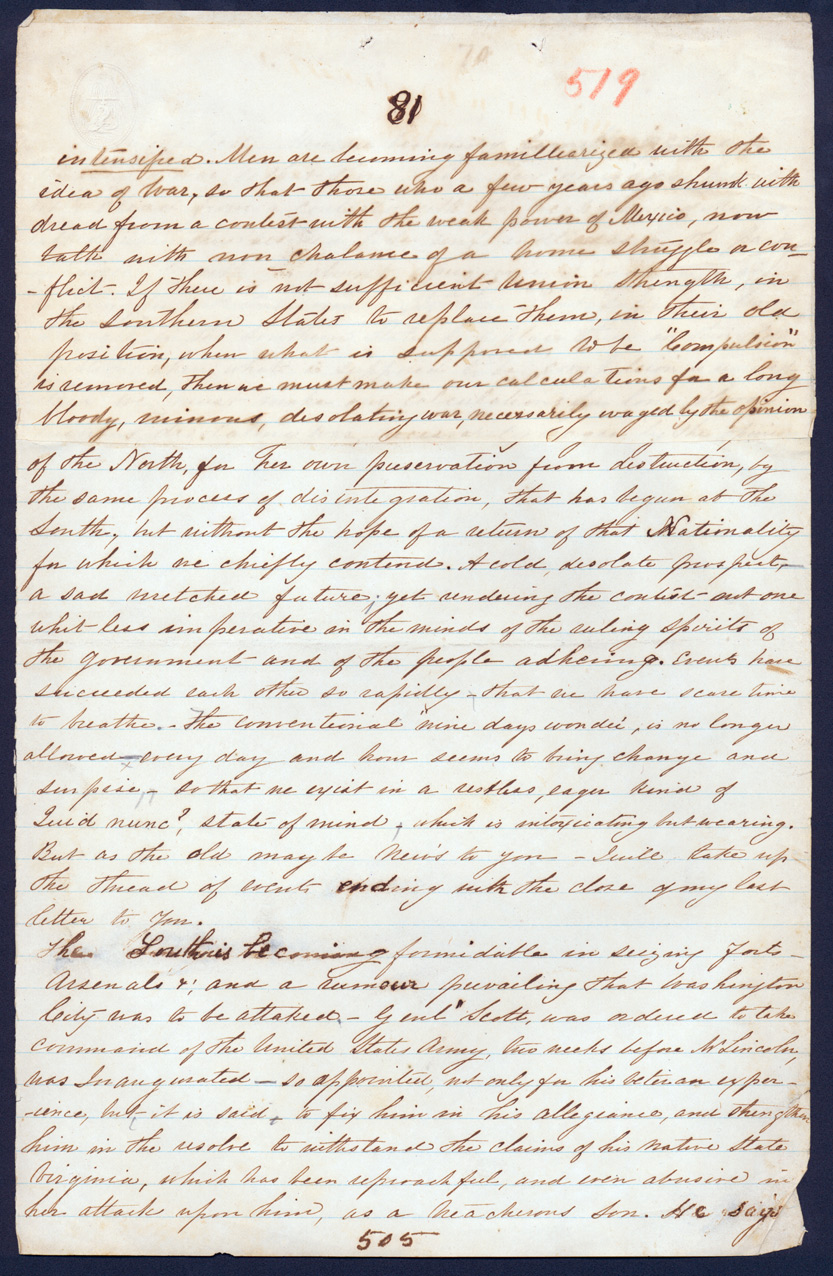 519
81
intensified. Men are becoming familiearized with the
idea of War, so that those who a few years ago shunk with
dread from a contest with the weak power of Mexico, now
talk with non chalance of a home struggle or con-
-flict. If there is not sufficient Union strength, in
the Southern States to replace them, in their old
position, when what is supposed to be "Compulsion"
is removed, then we must make our calculations for a long
bloody, ruinous, desolating war, necessarily waged by the opinion
of the North, for her own preservation from distruction, by
the same process of disintegration, that has begun at the
South, but without the hope of a return of that Nationality
for which we chiefly contend. A cold, desolate prospect,
a sad wretched future; yet rendering the contest not one
whit less imperative in the minds of the ruling spirits of
the government and of the people adhering. Events have
succeeded each other so rapidly - that we have scarce time
to breathe. - The conventional "nine days wonder", is no longer
allowed - every day and hour seems to bring change and
surprise - so that we exist in a restless, eager kind of
Quid nunc?, state of mind, which is intoxicating but wearing.
But as the old may be News to you - I will take up
the thread of events ending with the close of my last
letter to you.
The South is becoming formidable in seizing Forts -
Arsenals &; and a rumour prevailing that Washington
City was to be attaked - Genl Scott, was ordered to take
command of the United States Army, two weeks before Mr Lincoln,
was Inaugurated - so appointed, not only for his veteran exper-
-ience, but it is said, to fix him in his allegiance, and strengthen
him in the resolve to withstand the claims of his native State
Virginia, which has been reproachful, and even abusive in
her attack upon him, as a treacherous son. He says
505